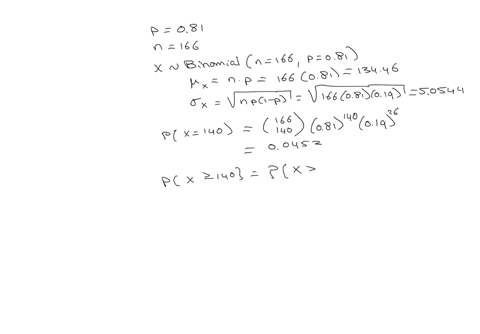 p = 0.81
n = 166
X ~ Binomial (n=166, p=0.81)
μx = n.p = 166 (0.81) = 134.46
σx = √np(1-p) = √166(0.81)(0.19) = 5.0544
P(X=140) = (166 140) (0.81)^140 (0.19)^26
= 0.0452
P(X ≥ 140) = P(X >